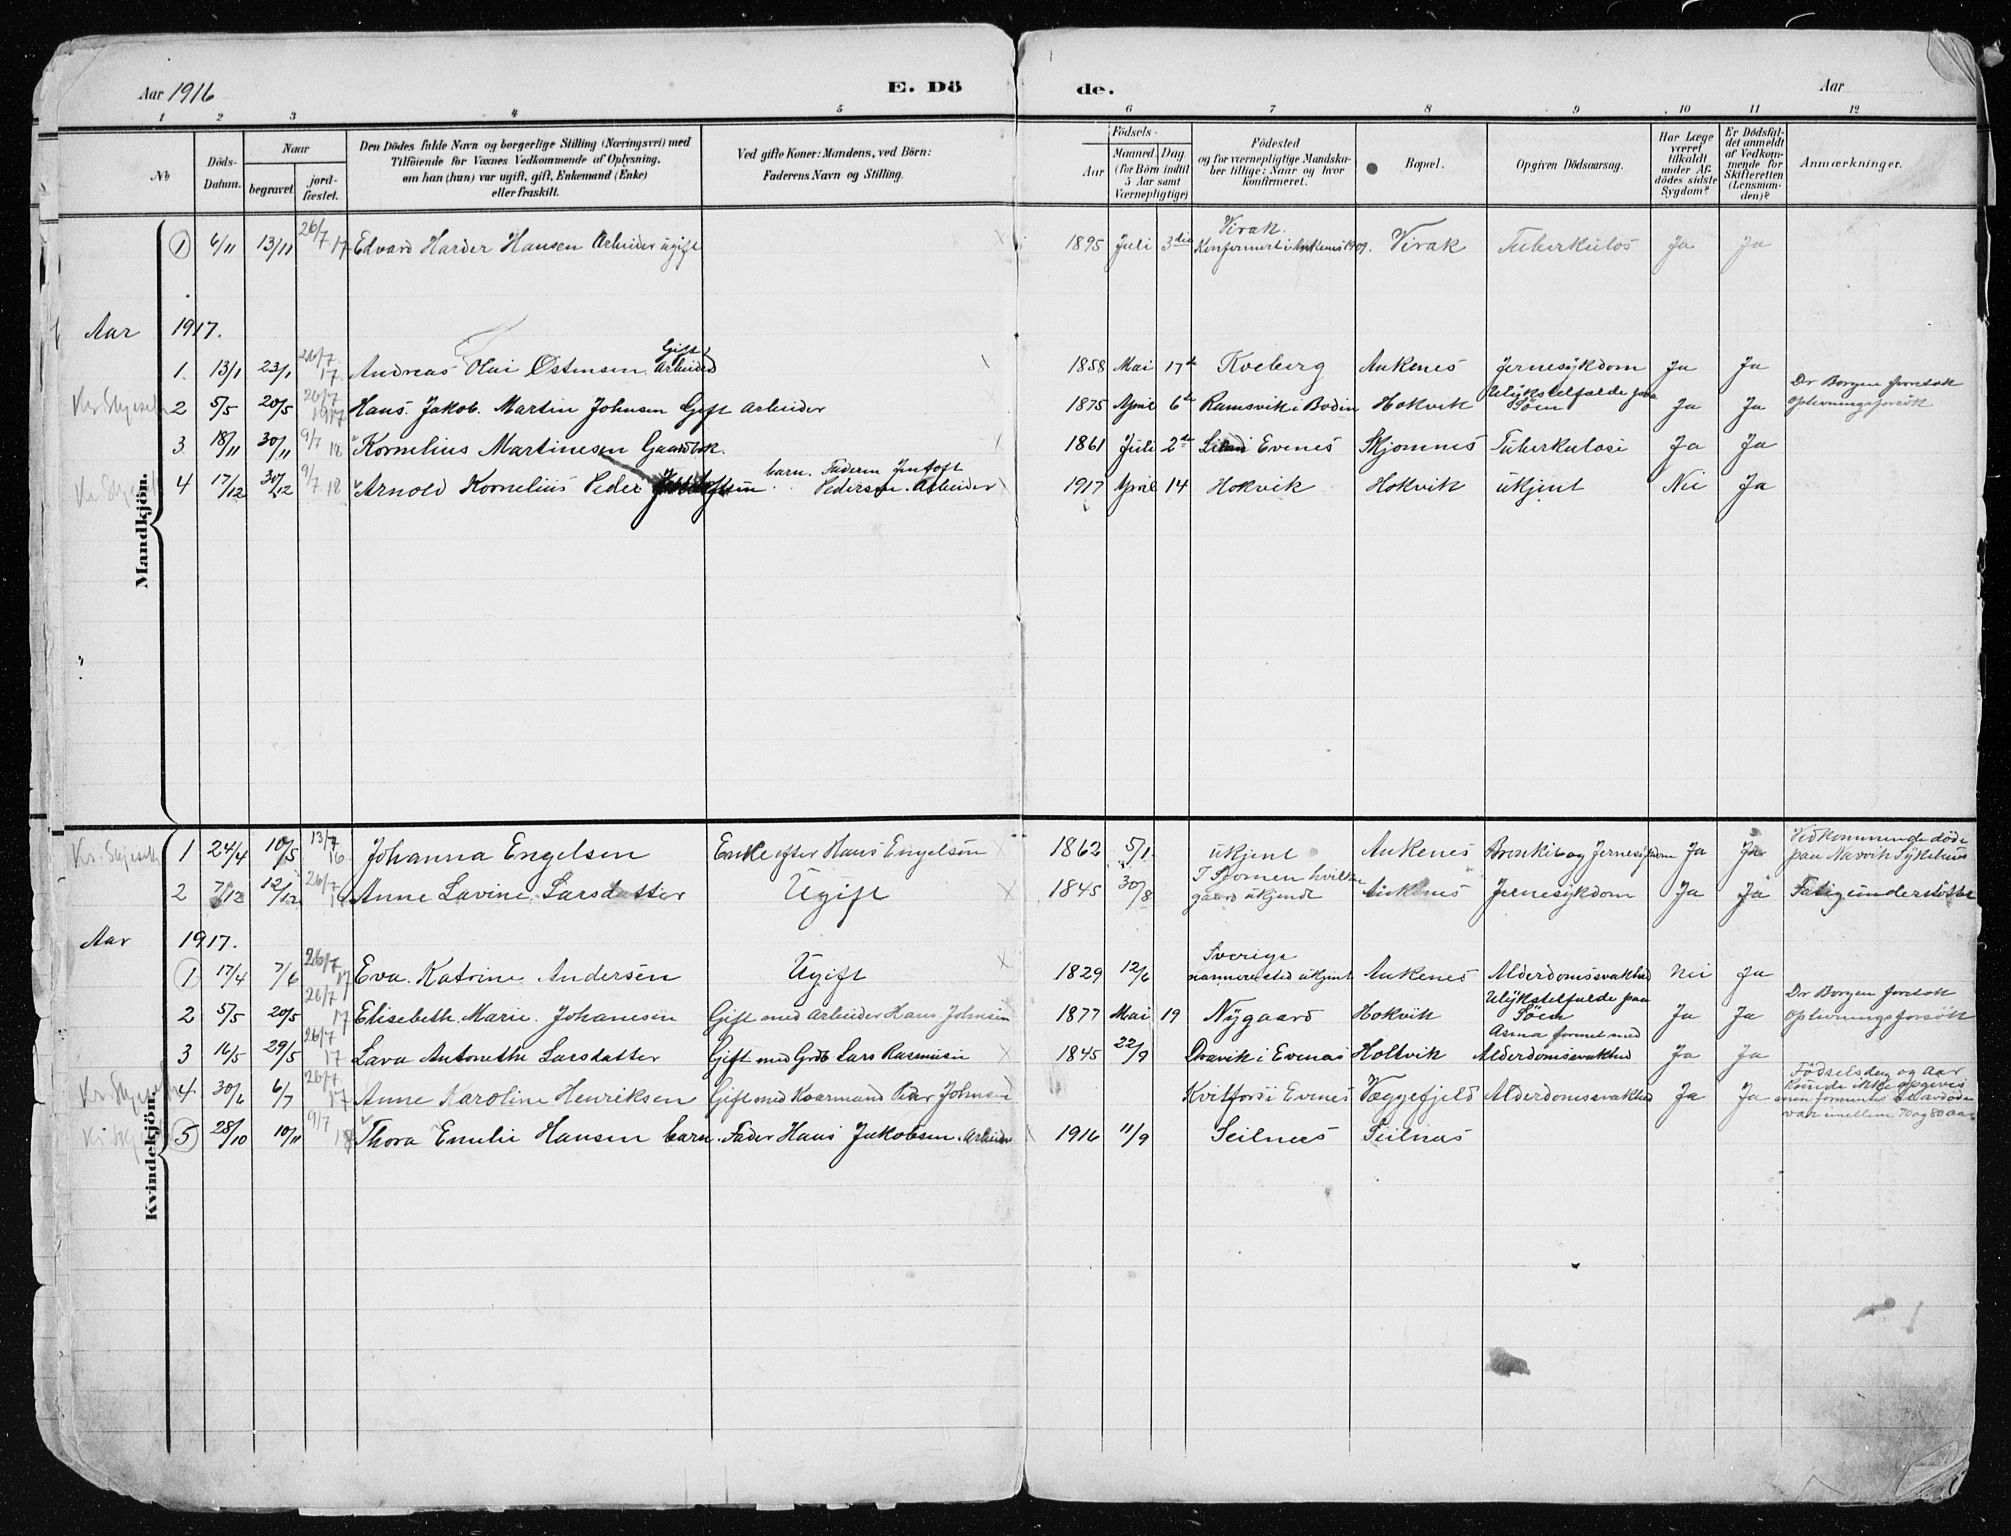 Aar 1916 E. Dö de. Aar
1 2 3 4 5 6 7 8 9 10 11 12
№ Döds-Datum. Naar begravet. jord-fæstet. Den Dödes fulde Navn og borgerlige Stilling (Næringsvei) med Tilföiende for Voxnes Vedkommende af Oplysning, om han (hun) var ugift, gift, Enkemand (Enke) eller fraskilt. Ved gifte Koner: Mandens, ved Börn: Faderens Navn og Stilling. Födsels- Aar Maaned. Dag. (for Börn indtil 5 Aar samt Værnepligtige) Födested og for værnepligtige Mandskaber tillige: Naar og hvor konfirmeret. Bopæl. Opgiven Dödsaarsag. Har Læge været tilkaldt under Afdödes sidste Sygdom? Er Dödsfaldet anmeldt af Vedkommende for Skifteretten (Lensmanden)? Anmærkninger.
Mandkjön.
1 6/11 13/11 26/7 17 Edvard Harder Hansen Arbeider ugift 1895 Juli 3die Virak. Konfirmert i Ankenes 1909. Virak Tuberkulos Ja Ja
Aar 1917.
1. 13/1 23/1 26/7 17. Andreas Olai Østensen Gift Arbeider 1858 Mai 17de Kveberg Ankenes Jernesykdom Ja Ja
2 5/5 20/5 26/7 1917 Hans. Jakob. Martin Johnsen Gift Arbeider 1875 April 6te Ramsvik i Bodin Hokvik Ulykstelfælde paa Söen Ja Ja Dr Borgen foretok Oplivningsforsök
3 18/11 30/11 9/7 18 Kornelius Martinesen Gaardbrk. 1861 Juli 2de Evenes Skjomnes Tuberkulose Ja Ja
4 17/12 30/12 9/7 18 Arnold Kornelius Peder barn. Faderen Jentoft Pedersen. Arbeider 1917 April 14 Hokvik Hokvik ukjent Nei Ja
Kvindekjön.
1 24/4 10/5 13/7 16 Johanna Engelsen Enke efter Hans Engelsen 1862 5/1. ukjent Ankenes Bronkit og Jernesykdom Ja Ja Vedkommende döde paa Narvik Sykehus
2 7/12 12/12 26/7 17 Anne Lavine Larsdatter Ugift 1845 30/8 I Skomen hvilken gaard ukjende Ankenes Jernesykdom Ja Ja Fatigunderstöttet
Aar 1917.
1 17/4 7/6 26/7 17 Eva Katrine Andersen Ugift 1829 12/6 Sverige nærmere sted ukjent Ankenes Alderdomssvakhed Nei Ja
2 5/5 20/5 26/7 17 Elisebeth. Marie. Johansen Gift med Arbeider Hans Johnsen 1877 Mai 19 Nygaard Hokvik Ulykstelfælde paa Söen Ja Ja Dr Borgen foretok Oplivningsforsök
3 16/5 29/5 26/7 17 Lava Antonette Larsdatter Gift med Grdb Lars Rasmusen 1845 22/9 Dravik i Evenes Holtvik Asma forent med Alderdomssvakhed Ja Ja
4 30/6 6/7 26/7 17 Anne Karoline Henriksen Gift med Kaarmand Peder Johnsen Kvitfors i Evenes Væggefjeld Alderdomssvakhed Ja Ja Födselsdag og Aar kunde ikke opgives men formentes at avdöde var imellem 70 og 80 aar.
5 28/10 10/11 9/7 18 Thora Emilie Hansen barn. Fader Hans Jakobsen. Arbeider 1916 11/9 Seilnes Seilnes